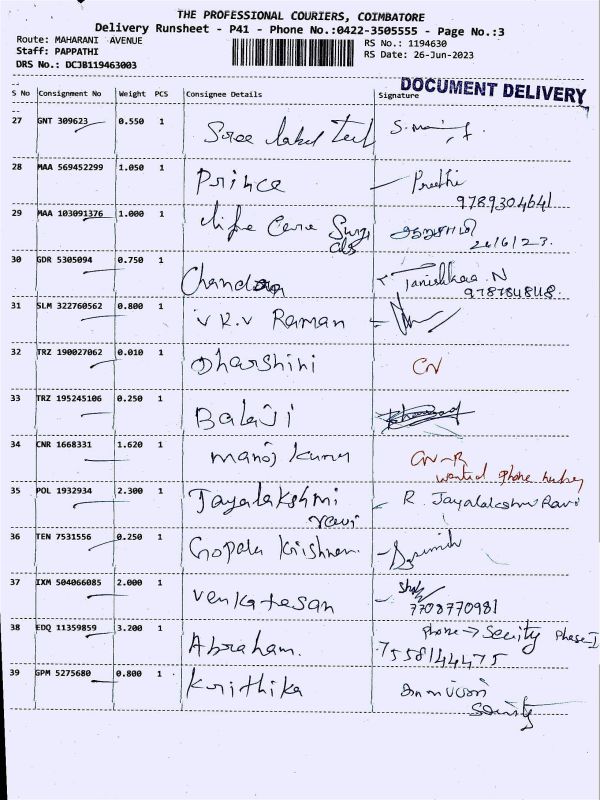 THE PROFESSIONAL COURIERS, COIMBATORE
Delivery Runsheet - P41 - Phone No.:0422-3505555 - Page No.:3
Route: MAHARANI AVENUE
RS No.: 1194630
Staff: PAPPATHI
RS Date: 26-Jun-2023
DRS No.: DCJB119463003
DOCUMENT DELIVERY
S No Consignment No Weight PCS Consignee Details Signature
27 GNT 309623 0.550 1 Sree
28 MAA 569452299 1.050 1 Prince Preethi
9789304641
29 MAA 103091376 1.000 1 Life Care
26/6/23.
30 GDR 5305094 0.750 1 Chandran Tanishkaa N
31 SLM 322760562 0.800 1 V K.V Raman
32 TRZ 190027062 0.010 1 Dharshini CN
33 TRZ 195245106 0.250 1 Balaji
34 CNR 1668331 1.620 1 Manoj Kumar CN-R
wanted phone
35 POL 1932934 2.300 1 Jayalakshmi R. Jayalakshmi Ravi
ravi
36 TEN 7531556 0.250 1 Gopala Krishnan
37 IXM 504066085 2.000 1 Venkatesan
7708770981
38 EDQ 11359859 3.200 1 Abraham. Phone → Secity Phase I
7558144475
39 GPM 5275680 0.800 1 Krithika